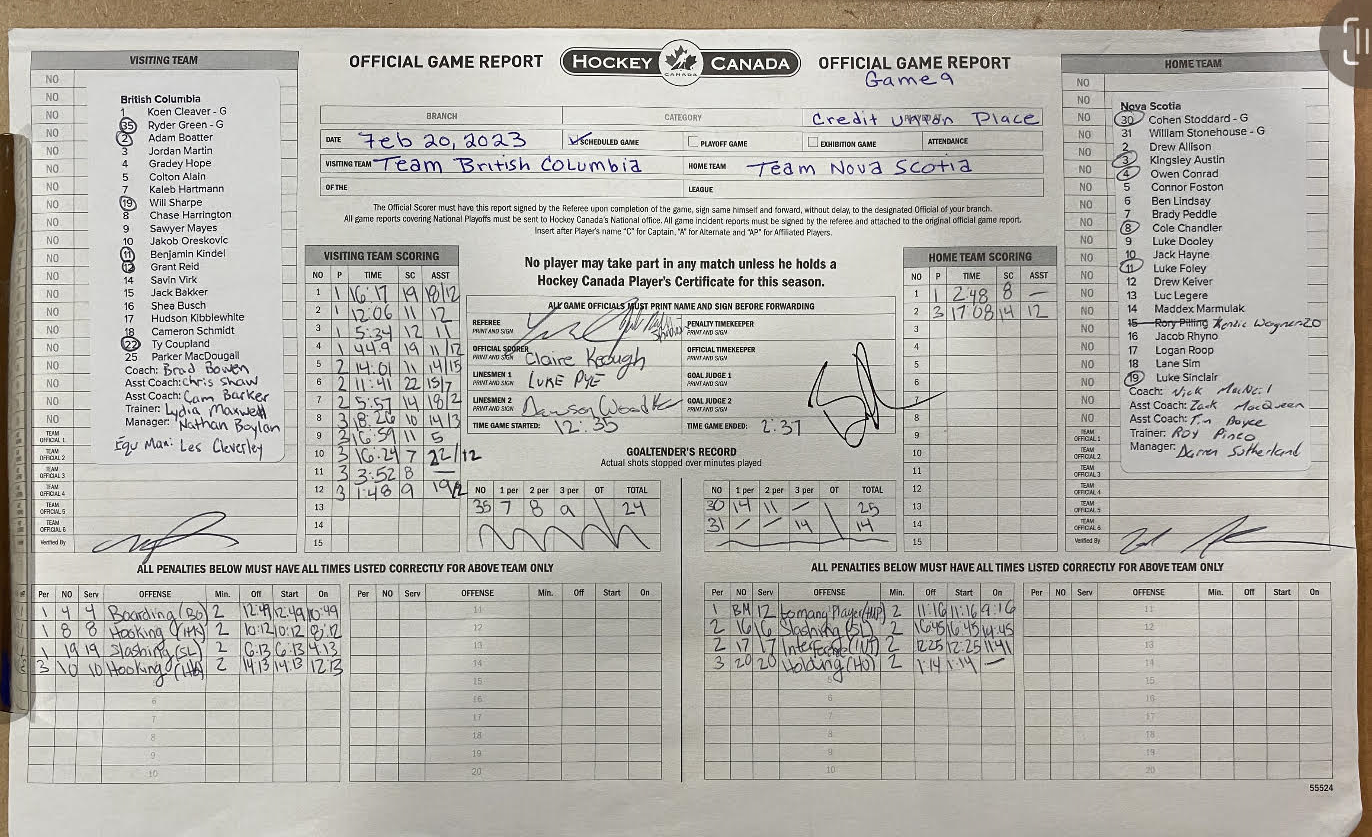 OFFICIAL GAME REPORT HOCKEY CANADA OFFICIAL GAME REPORT
CANADA
Game 9
VISITING TEAM
British Columbia
1 Koen Cleaver - G
35 Ryder Green - G
2 Adam Boatter
3 Jordan Martin
4 Gradey Hope
5 Colton Alain
7 Kaleb Hartmann
19 Will Sharpe
8 Chase Harrington
9 Sawyer Mayes
10 Jakob Oreskovic
11 Benjamin Kindel
12 Grant Reid
14 Savin Virk
15 Jack Bakker
16 Shea Busch
17 Hudson Kibblewhite
18 Cameron Schmidt
22 Ty Coupland
25 Parker MacDougall
Coach: Brad Bowen
Asst Coach: Chris Shaw
Asst Coach: Cam Barker
Trainer: Lydia Maxwell
Manager: Nathan Boylan
Equ Man: Les Cleverley
TEAM OFFICIAL 1
TEAM OFFICIAL 2
TEAM OFFICIAL 3
TEAM OFFICIAL 4
TEAM OFFICIAL 5
TEAM OFFICIAL 6
Verified By
BRANCH CATEGORY Credit Union Place
DATE Feb 20, 2023 SCHEDULED GAME PLAYOFF GAME EXHIBITION GAME ATTENDANCE
VISITING TEAM Team British Columbia HOME TEAM Team Nova Scotia
OF THE LEAGUE
The Official Scorer must have this report signed by the Referee upon completion of the game, sign same himself and forward, without delay, to the designated Official of your branch.
All game reports covering National Playoffs must be sent to Hockey Canada's National office. All game incident reports must be signed by the referee and attached to the original official game report.
Insert after Player's name "C" for Captain, "A" for Alternate and "AP" for Affiliated Players.
VISITING TEAM SCORING
NO P TIME SC ASST
1 1 16:17 19 18/12
2 1 12:06 11 12
3 1 5:34 12 11
4 1 44.9 19 11/12
5 2 14:01 11 14/15
6 2 11:41 22 15/7
7 2 5:57 14 18/2
8 3 18:26 10 14/3
9 3 16:59 11 5
10 3 16:24 7 22/12
11 3 3:52 8 —
12 3 1:48 9 19/2
13
14
15
No player may take part in any match unless he holds a
Hockey Canada Player's Certificate for this season.
ALL GAME OFFICIALS MUST PRINT NAME AND SIGN BEFORE FORWARDING
REFEREE PRINT AND SIGN PENALTY TIMEKEEPER PRINT AND SIGN
OFFICIAL SCORER PRINT AND SIGN Claire Keough OFFICIAL TIMEKEEPER PRINT AND SIGN
LINESMEN 1 PRINT AND SIGN LUKE PYE GOAL JUDGE 1 PRINT AND SIGN
LINESMEN 2 PRINT AND SIGN GOAL JUDGE 2 PRINT AND SIGN
TIME GAME STARTED: 12:35 TIME GAME ENDED: 2:37
GOALTENDER'S RECORD
Actual shots stopped over minutes played
NO 1 per 2 per 3 per OT TOTAL
35 7 8 9 24
NO 1 per 2 per 3 per OT TOTAL
30 14 11 — 25
31 — — 14 14
HOME TEAM SCORING
NO P TIME SC ASST
1 1 2:48 8 —
2 3 17:08 14 12
3
4
5
6
7
8
9
10
11
12
13
14
15
HOME TEAM
Nova Scotia
30 Cohen Stoddard - G
31 William Stonehouse - G
2 Drew Allison
3 Kingsley Austin
4 Owen Conrad
5 Connor Foston
6 Ben Lindsay
7 Brady Peddle
8 Cole Chandler
9 Luke Dooley
10 Jack Hayne
11 Luke Foley
12 Drew Kelver
13 Luc Legere
14 Maddex Marmulak
15 Rory Pilling
16 Jacob Rhyno
17 Logan Roop
18 Lane Sim
19 Luke Sinclair
Coach: Nick MacNeil
Asst Coach: Zack MacQueen
Asst Coach: Tim Boyce
Trainer: Roy Pinco
Manager: Darren Sutherland
TEAM OFFICIAL 1
TEAM OFFICIAL 2
TEAM OFFICIAL 3
TEAM OFFICIAL 4
TEAM OFFICIAL 5
TEAM OFFICIAL 6
Verified By
ALL PENALTIES BELOW MUST HAVE ALL TIMES LISTED CORRECTLY FOR ABOVE TEAM ONLY
Per NO Serv OFFENSE Min. Off Start On Per NO Serv OFFENSE Min. Off Start On
1 4 4 Boarding (BO) 2 12:49 12:49 10:49 11
1 8 8 Hooking (HK) 2 10:12 10:12 8:12 12
1 19 19 Slashing (SL) 2 6:13 6:13 4:13 13
3 10 10 Hooking 2 14:13 14:13 12:13 14
15
6 16
7 17
8 18
9 19
10 20
ALL PENALTIES BELOW MUST HAVE ALL TIMES LISTED CORRECTLY FOR ABOVE TEAM ONLY
Per NO Serv OFFENSE Min. Off Start On Per NO Serv OFFENSE Min. Off Start On
1 BM 12 2 11:16 11:16 9:16 11
2 16 16 Slashing (SL) 2 16:45 16:45 14:45 12
2 17 17 2 12:25 12:25 11:41 13
3 20 20 Holding (HO) 2 1:14 1:14 — 14
5 15
6 16
7 17
8 18
9 19
10 20
55524